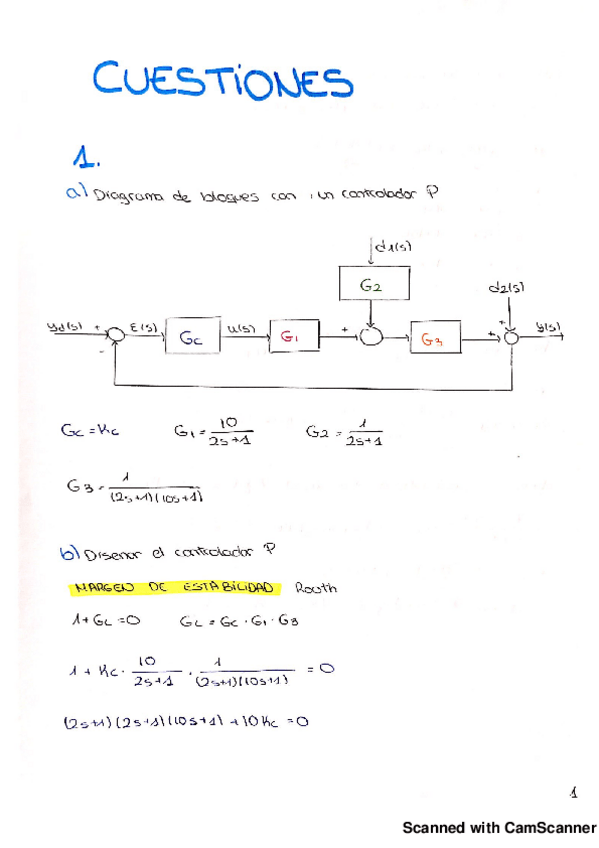 CUESTIONES
1.
a) Diagrama de bloques con un controlador P
d1(s)
G2
d2(s)
yd(s) + E(s) Gc u(s) G1 + G3 + + y(s)
-
Gc = Kc G1 = 10/(2s+1) G2 = 1/(2s+1)
G3 = 1/((2s+1)(10s+1))
b) Diseñar el controlador P
MARGEN DE ESTABILIDAD Routh
1+GL=0 GL = Gc · G1 · G3
1 + Kc · 10/(2s+1) · 1/((2s+1)(10s+1)) = 0
(2s+1)(2s+1)(10s+1)+10Kc=0
1
Scanned with CamScanner